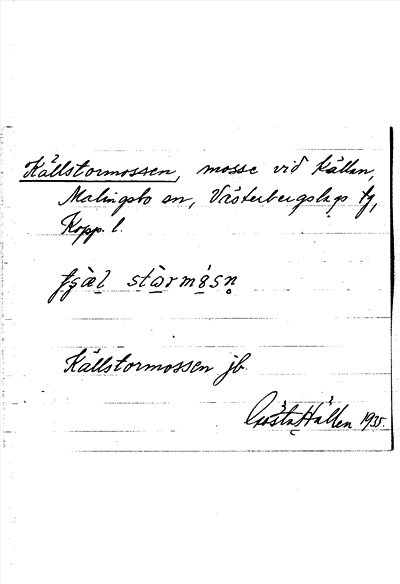 Källstormossen, mosse vid Källan,
Malingsbo sn, Västerbergslags fg,
Kopp. l.
stòrmósn̥
Källstormossen jb.
Gösta Hållen 1935.